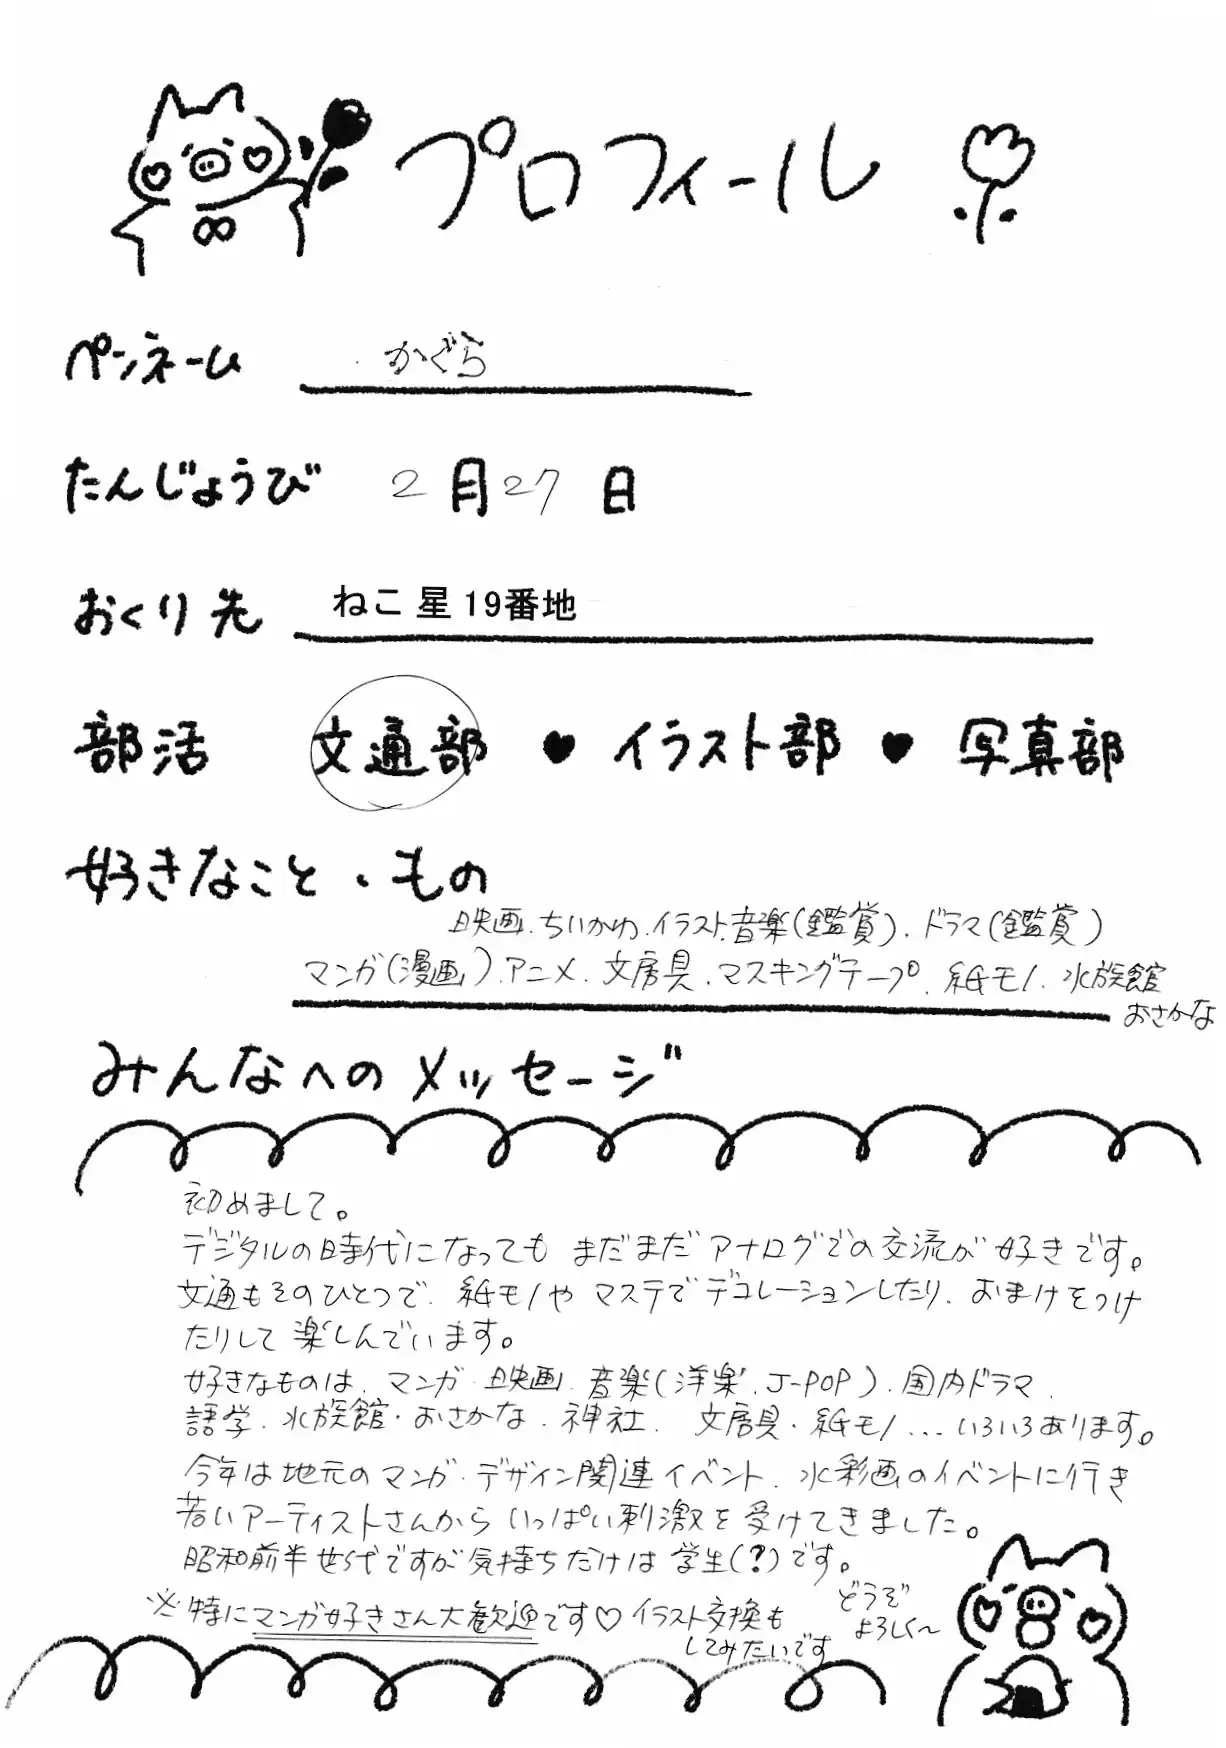 プロフィール
ペンネーム かぐら
たんじょうび 2月27日
おくり先 ねこ星19番地
部活 文通部 ♥ イラスト部 ♥ 写真部
好きなこと・もの
映画.ちいかわ.イラスト.音楽(鑑賞).ドラマ(鑑賞)
マンガ(漫画).アニメ.文房具.マスキングテープ.紙モノ.水族館
おさかな
みんなへのメッセージ
初めまして。
デジタルの時代になっても まだまだ アナログでの交流が好きです。
文通もそのひとつで.紙モノや マステで デコレーションしたり.おまけをつけ
たりして 楽しんでいます。
好きなものは.マンガ.映画.音楽(洋楽.J-POP).国内ドラマ.
語学.水族館・おさかな.神社.文房具・紙モノ...いろいろあります。
今年は地元のマンガ・デザイン関連イベント.水彩画のイベントに行き
若いアーティストさんから いっぱい刺激を受けてきました。
昭和前半世代ですが気持ちだけは学生(?)です。
※特にマンガ好きさん大歓迎です♡ イラスト交換も
してみたいです
どうぞ
よろしく〜